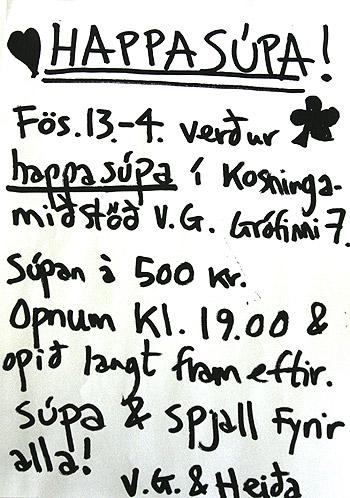 HAPPASÚPA!
Fös. 13.-4. verður
happasúpa í Kosninga-
miðstöð V.G. Grófinni 7.
Súpan à 500 Kr.
Opnum Kl. 19.00 &
opið langt fram eftir.
Súpa & spjall fyrir
alla!
V.G. & Heiða